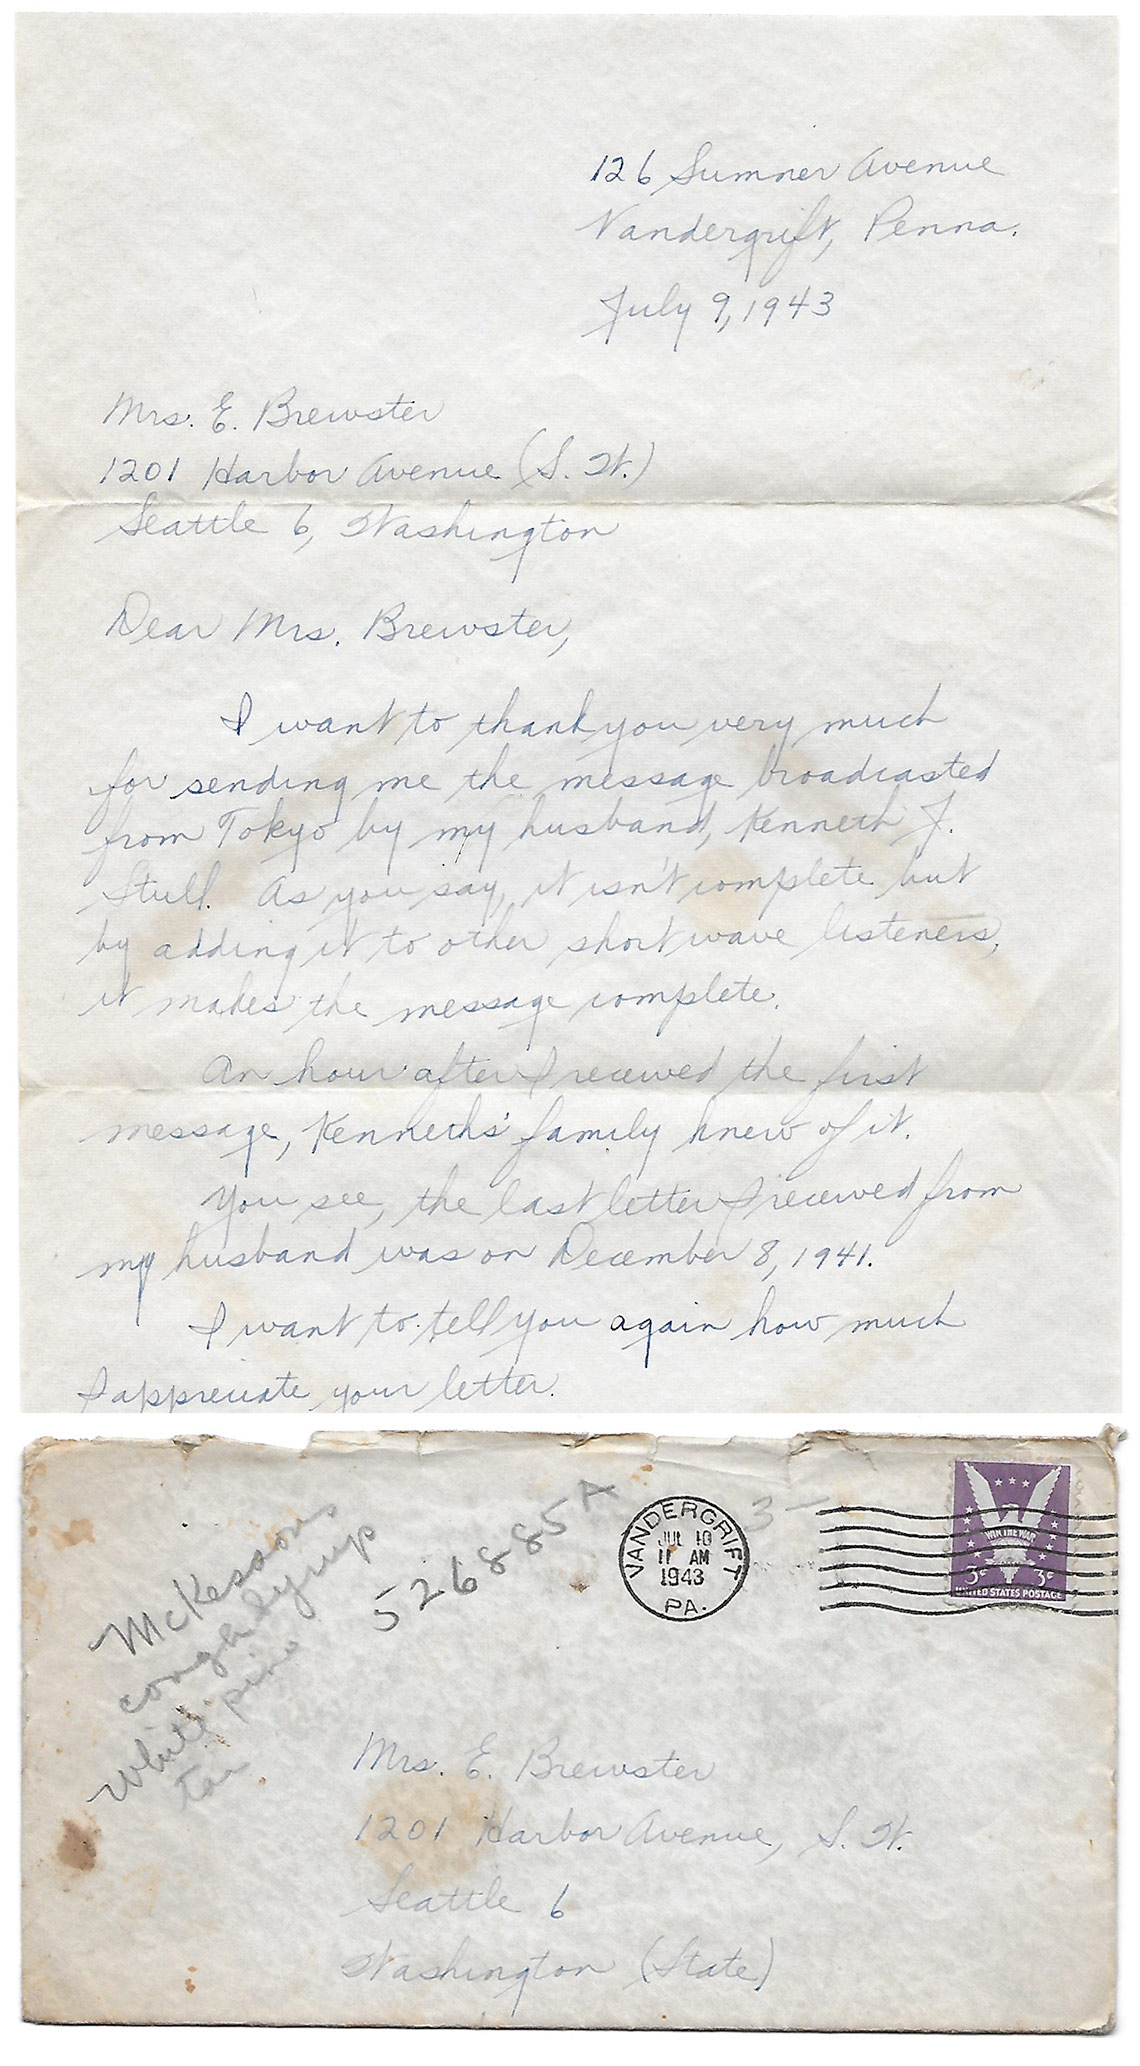 126 Sumner Avenue
Vandergrift, Penna.
July 9, 1943
Mrs. E. Brewster
1201 Harbor Avenue (S. W.)
Seattle 6, Washington
Dear Mrs. Brewster,
I want to thank you very much
for sending me the message broadcasted
from Tokyo by my husband, Kenneth J.
Stull. As you say, it isn't complete but
by adding it to other short wave listeners,
it makes the message complete.
An hour after I received the first
message, Kenneths' family knew of it.
You see, the last letter I received from
my husband was on December 8, 1941.
I want to tell you again how much
I appreciate your letter.
McKessons
cough syrup
White pine
tar
526885A
3-
VANDERGRIFT
JUL 10
11 AM
1943
PA.
WIN THE WAR
3¢ 3¢
UNITED STATES POSTAGE
Mrs. E. Brewster
1201 Harbor Avenue, S. W.
Seattle 6
Washington (State)